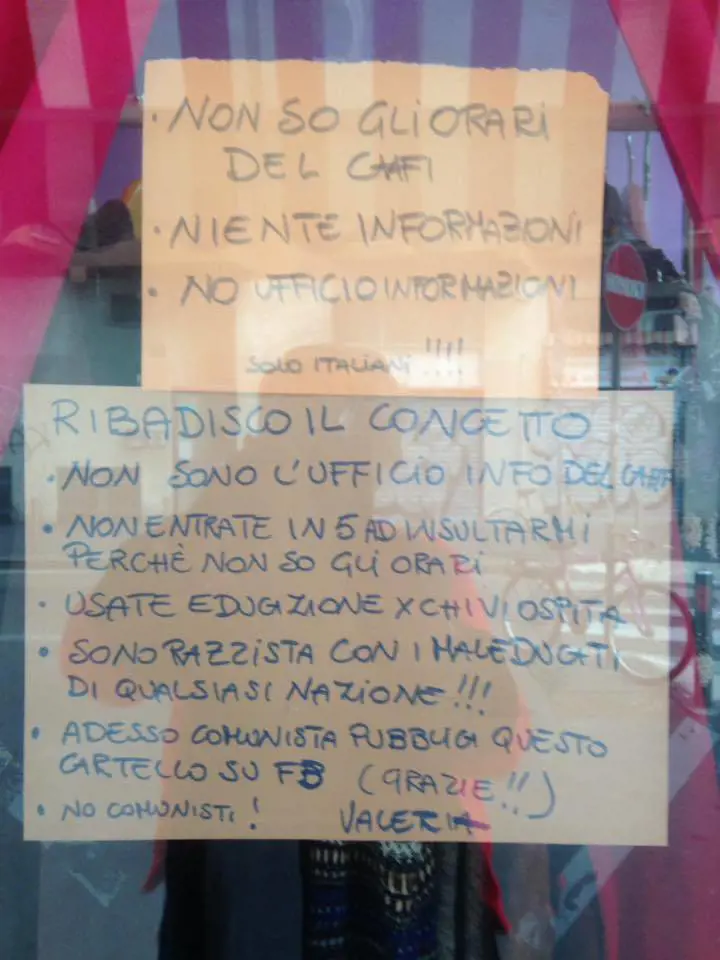 • NON SO GLI ORARI
DEL CAFI
• NIENTE INFORMAZIONI
• NO UFFICIO INFORMAZIONI
SOLO ITALIANI !!!!
RIBADISCO IL CONCETTO
• NON SONO L'UFFICIO INFO DEL CAFI
• NON ENTRATE IN 5 AD INSULTARMI
PERCHÈ NON SO GLI ORARI
• USATE EDUCAZIONE X CHI VI OSPITA
• SONO RAZZISTA CON I MALEDUCATI
DI QUALSIASI NAZIONE !!!
• ADESSO COMUNISTA PUBBLICA QUESTO
CARTELLO SU FB (GRAZIE!!)
• NO COMUNISTI!
VALERIA